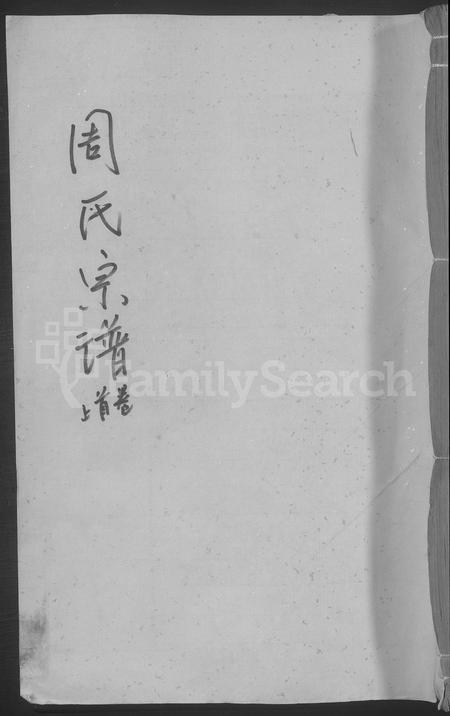 周氏宗谱
首卷上
FamilySearch